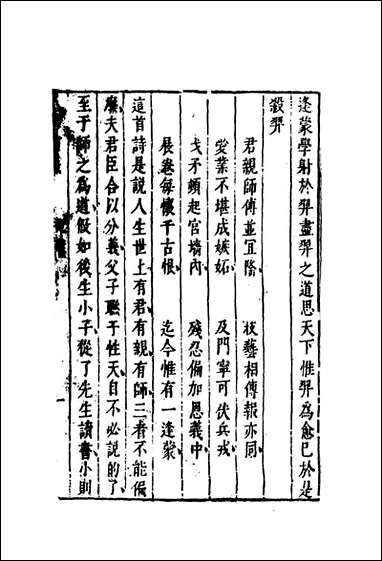 逄蒙學射於羿盡羿之道思天下惟羿為愈已於是
殺羿
君親師傅並宜隆　技藝相傳報亦同
受業不堪成嫉妬　及門寧可伏兵戎
戈矛頻起宮墻內　殘忍偏加恩義中
展卷每懷千古恨　迄今惟有一逢蒙
這首詩是說人生世上有君有親有師三者不能偏
廢夫君臣合以分義父子聯于性天自不必說的了
至于師之為道假如後生小子從了先生讀書小則